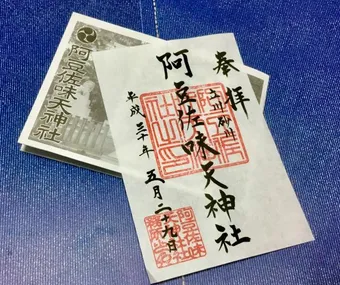 奉拝
立川砂川
阿豆佐味天神社
平成三十年 五月二十九日
阿豆佐味天神社